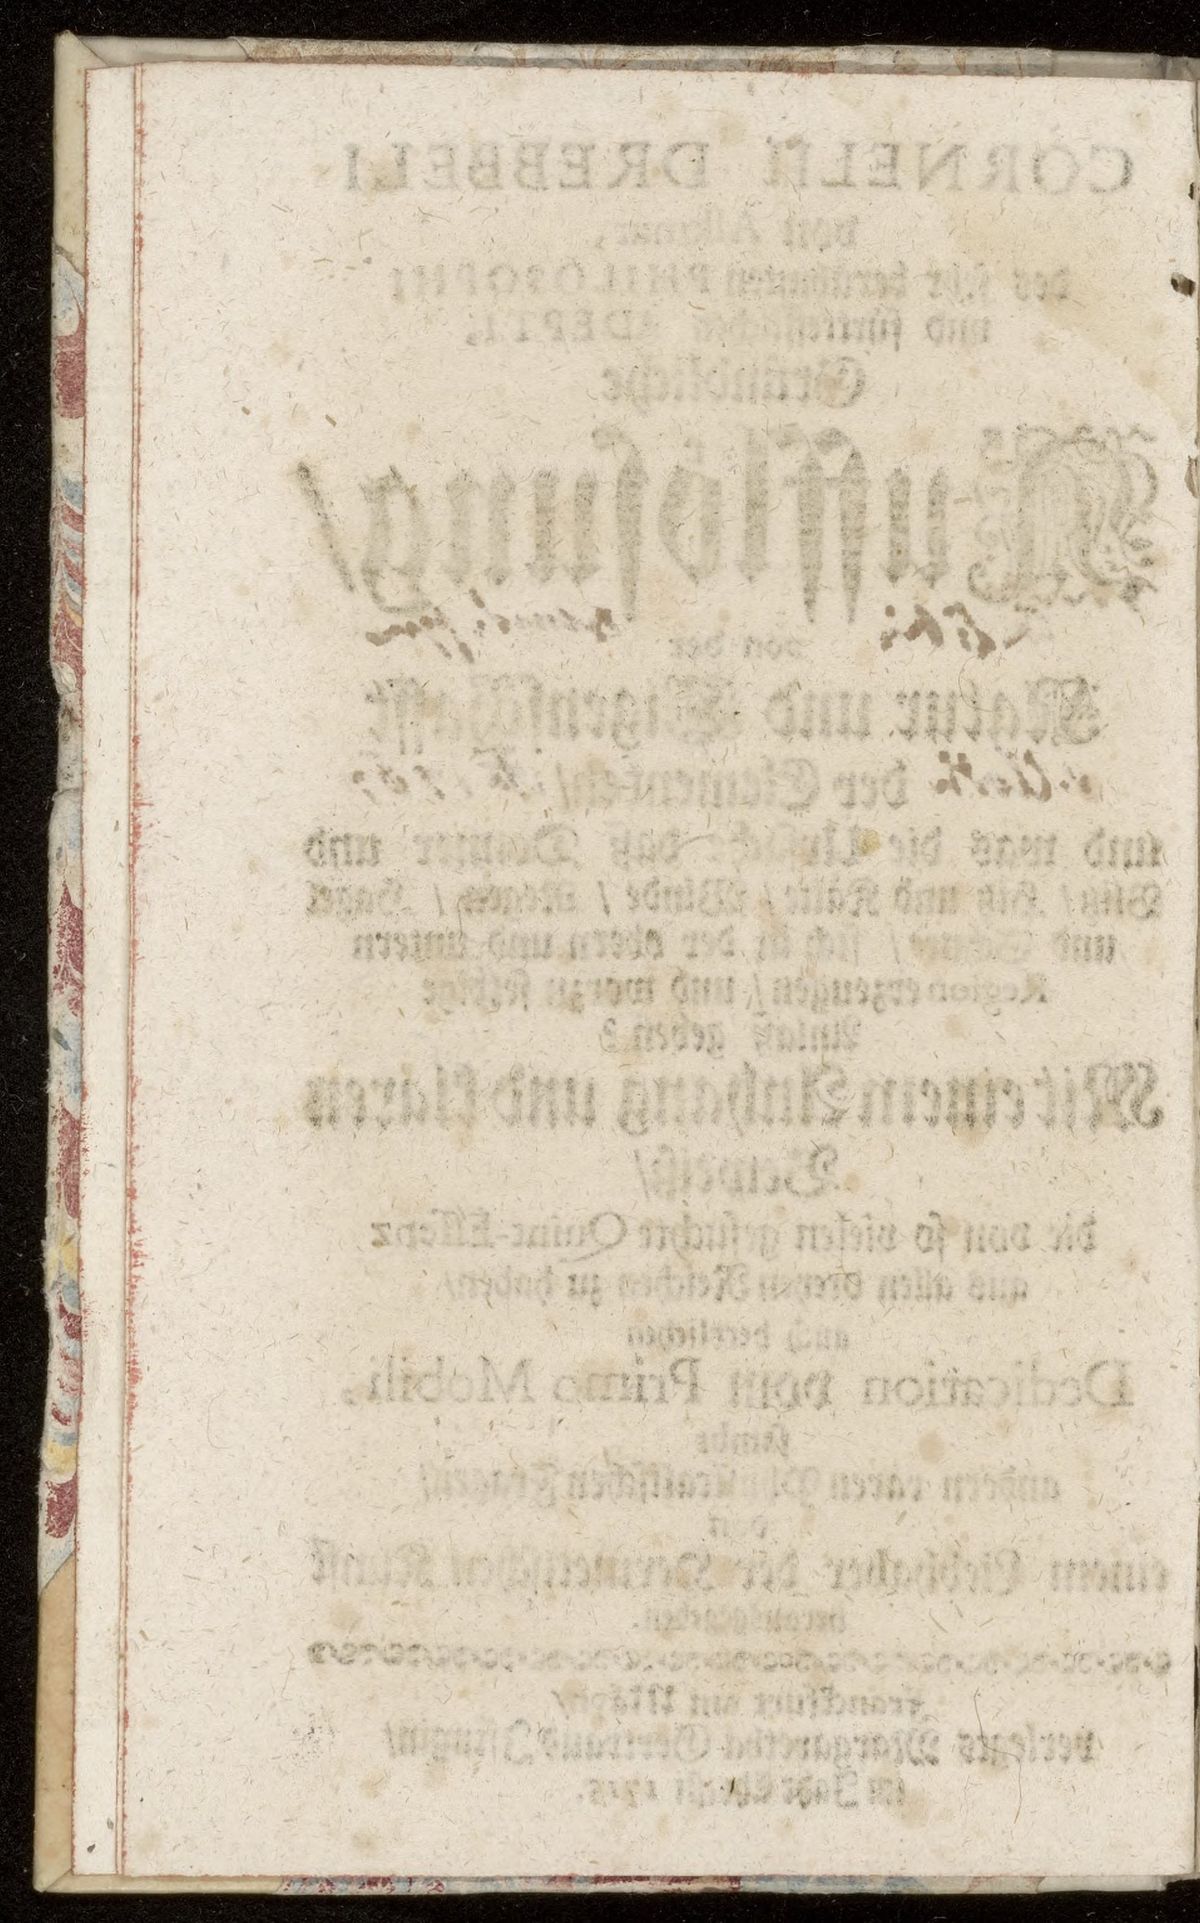 CORNELII DREBBELI
von
des sehr berühmten PHILOSOPHI
und fürtrefflichen ADEPTI,
Gründliche
Aufflösung/
von der
Natur und Eigenschafft
der Elementen/
und was die Ursach/ daß Donner und
Blitz/ Hitz und Kälte/ Winde/ Regen/ Hagel
und Schnee/ sich in der obern und untern
Region erzeugen/ und worzu selbige
Anlaß geben?
Mit einem Anhang und klaren
Beweiß/
die von so vielen gesuchte Quint-Essenz
aus allen dreyen Reichen zu haben/
und herrlichen
Dedication vom Primo Mobili,
sambt
andern raren Physicalischen Fragen/
von
einem Liebhaber der Hermetischen Kunst
herausgegeben.
Franckfurt am Mayn/
verlegts Margaretha Gertraud
im Jahr Christi 1715.